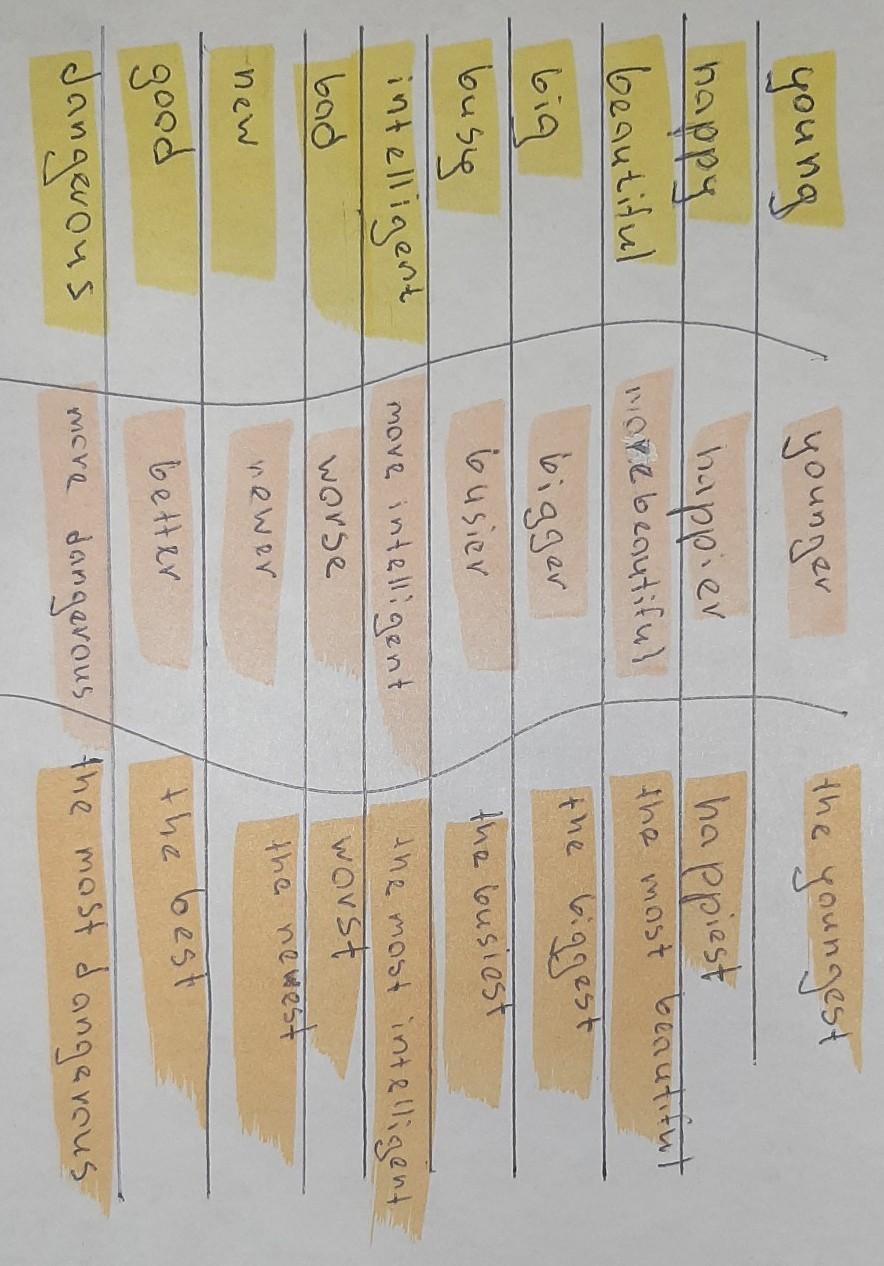 young younger the youngest
happy happier happiest
beautiful more beautiful the most beautiful
big bigger the biggest
busy busier the busiest
intelligent more intelligent the most intelligent
bad worse worst
new newer the newest
good better the best
dangerous more dangerous the most dangerous